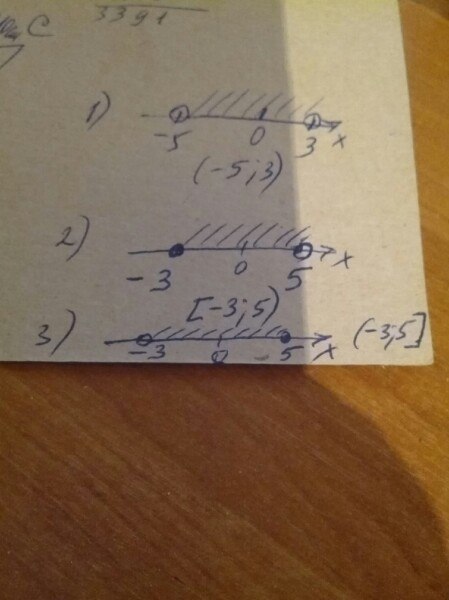 C
3391
1)
-5 0 3 x
(-5;3)
2)
-3 0 5 x
[-3;5)
3)
-3 0 5 x (-3;5]